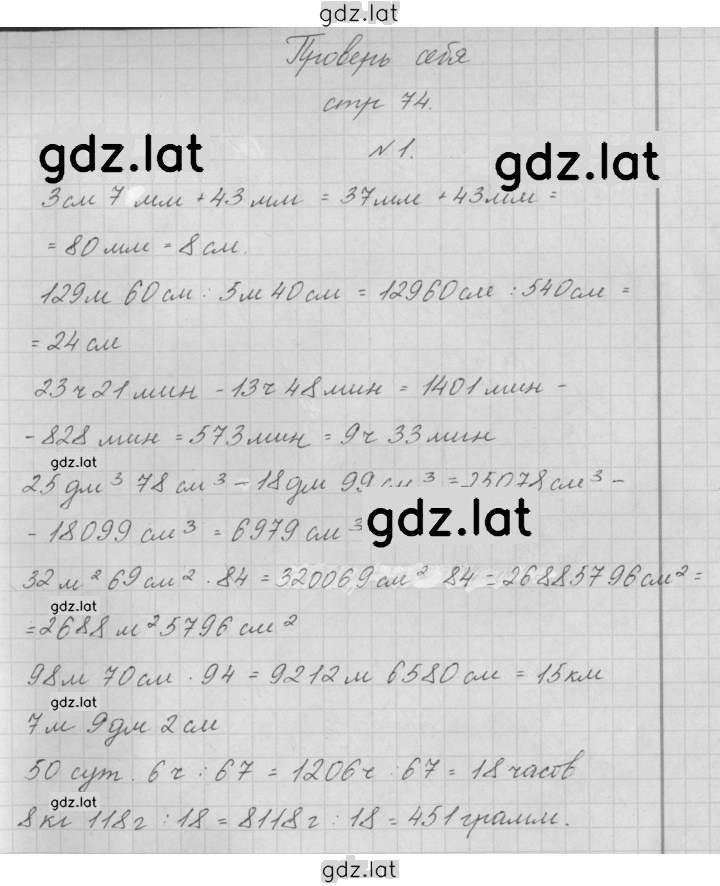 gdz.lat
Проверь себя
стр 74.
gdz.lat
N 1.
gdz.lat
3см 7 мм + 43 мм = 37мм + 43мм =
= 80 мм = 8 см.
129м 60см : 5м 40см = 12960см : 540см =
= 24 см
23ч 21 мин - 13ч 48 мин = 1401 мин -
- 828 мин = 573 мин = 9ч 33 мин
gdz.lat
25 дм³ 78 см³ - 18дм 99 см³ = 25078 см³ -
- 18099 см³ = 6979 см³
gdz.lat
32 м² 69 см² · 84 = 320069 см² 84 = 26885796 см² =
gdz.lat
= 2688 м² 5796 см²
98м 70см · 94 = 9212 м 6580 см = 15 км
gdz.lat
7 м 9дм 2 см
50 сут. 6ч : 67 = 1206ч : 67 = 18 часов
gdz.lat
8кг 118г : 18 = 8118г : 18 = 451 грамм.
gdz.lat